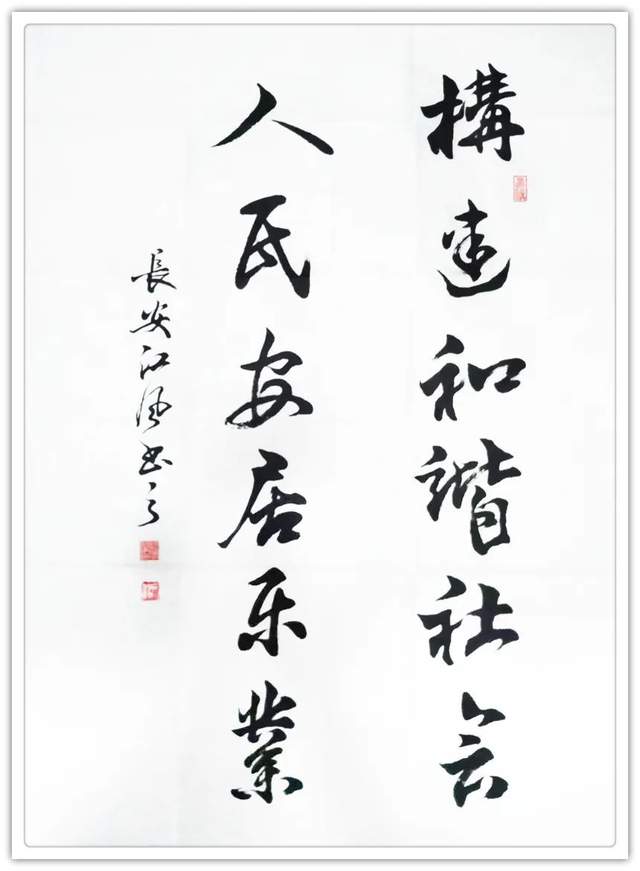 構建和谐社会
人民安居乐業
長安江风书之